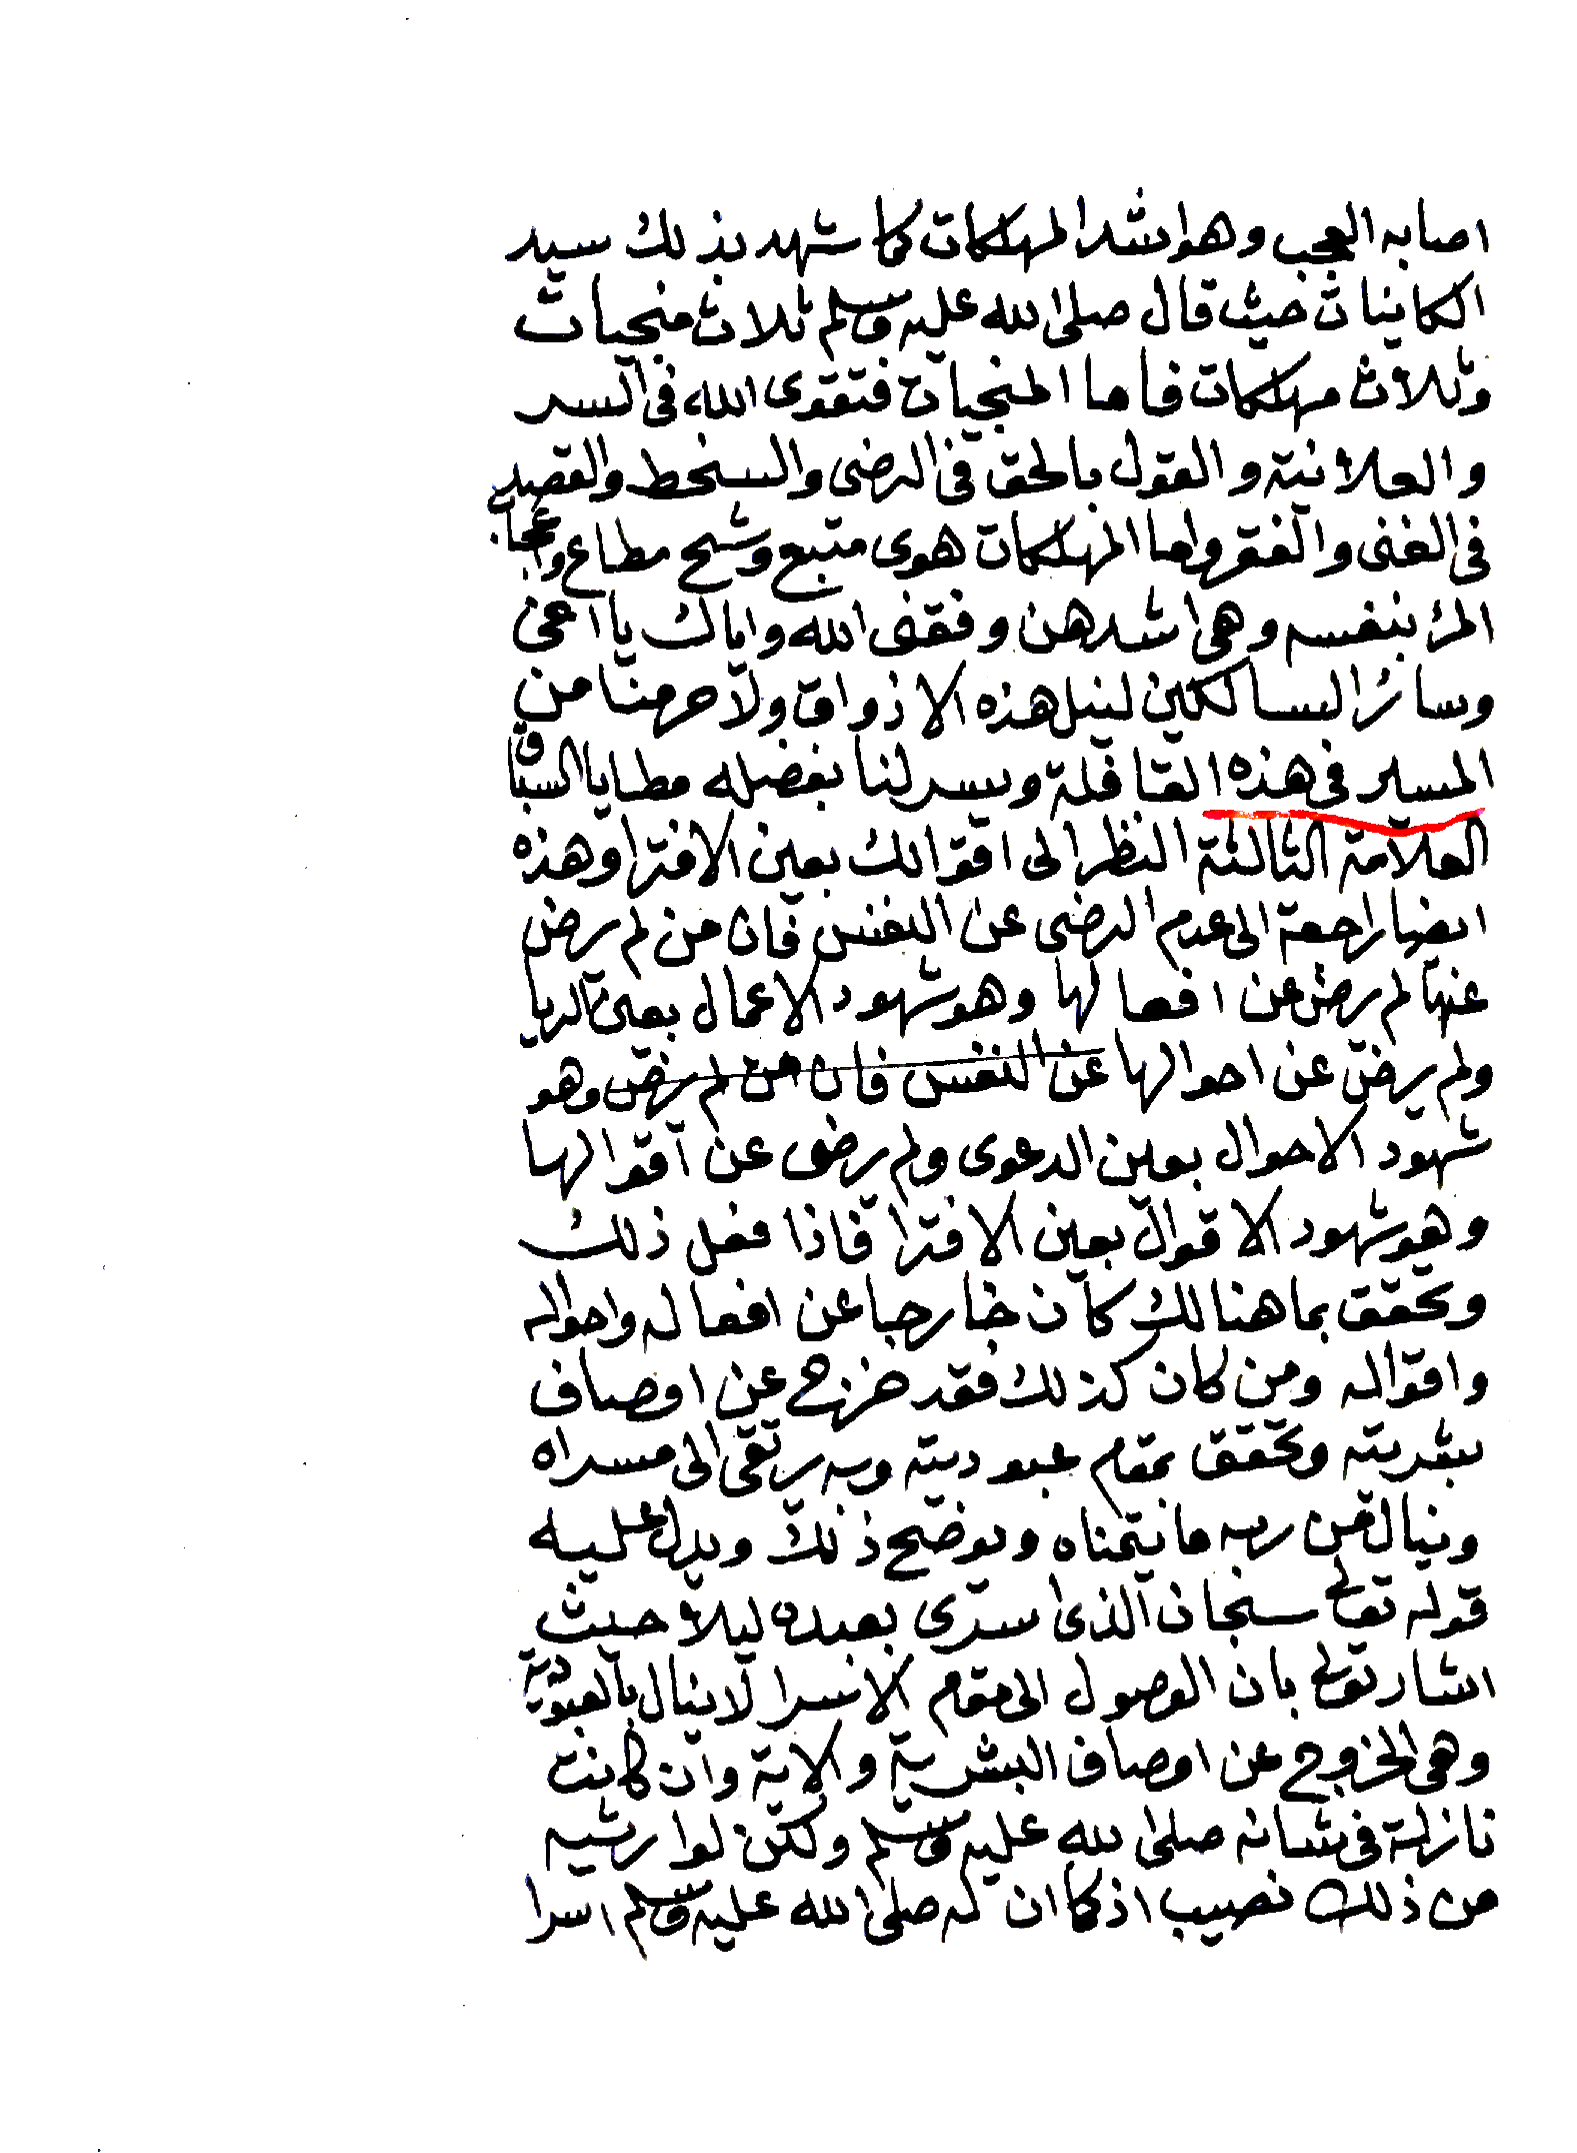 اصابه العجب وهو اشد المهلكات كما شهد بذلك سيد
الكاينات حيث قال صلى الله عليه وسلم ثلاث منجيات
وثلاث مهلكات فاما المنجيات فتقوى الله فى السر
والعلانية والقول بالحق فى الرضى والسخط والقصد
فى الغنى والفقر واما المهلكات هوى متبع وشح مطاع واعجاب
المرء بنفسه وهى اشدهن وفقنى الله واياك يا اخى
وسائر السالكين لنيل هذه الاذواق ولا حرمنا من
المسير فى هذه القافلة ويسر لنا بفضله مطايا السباق
العلامة الثالثة النظر الى اقوالك بعين الافترا وهذه
ايضا راجعة الى عدم الرضى عن النفس فان من لم يرض
عنها لم يرض عن افعالها وهو شهود الاعمال بعين الريا
ولم يرض عن احوالها عن النفس فان من لم يرض وهو
شهود الاحوال بعين الدعوى ولم يرض عن اقوالها
وهو شهود الاقوال بعين الافترا فاذا فعل ذلك
وتحقق بما هنالك كان خارجا عن افعاله واحواله
واقواله ومن كان كذلك فقد خرج عن اوصاف
بشريته وتحقق بمقام عبوديته وبه يرتقى الى مسراه
وينال من ربه ما يتمناه ويوضح ذلك ويدل عليه
قوله تعالى سبحان الذى اسرى بعبده ليلا حيث
اشار تعالى بان الوصول الى مقام الاسرا لا ينال بالعبودية
وهى الخروج عن اوصاف البشرية والاية وان كانت
نازلة فى شانه صلى الله عليه وسلم ولكن لوارثيه
من ذلك نصيب اذ كما ان له صلى الله عليه وسلم اسرا